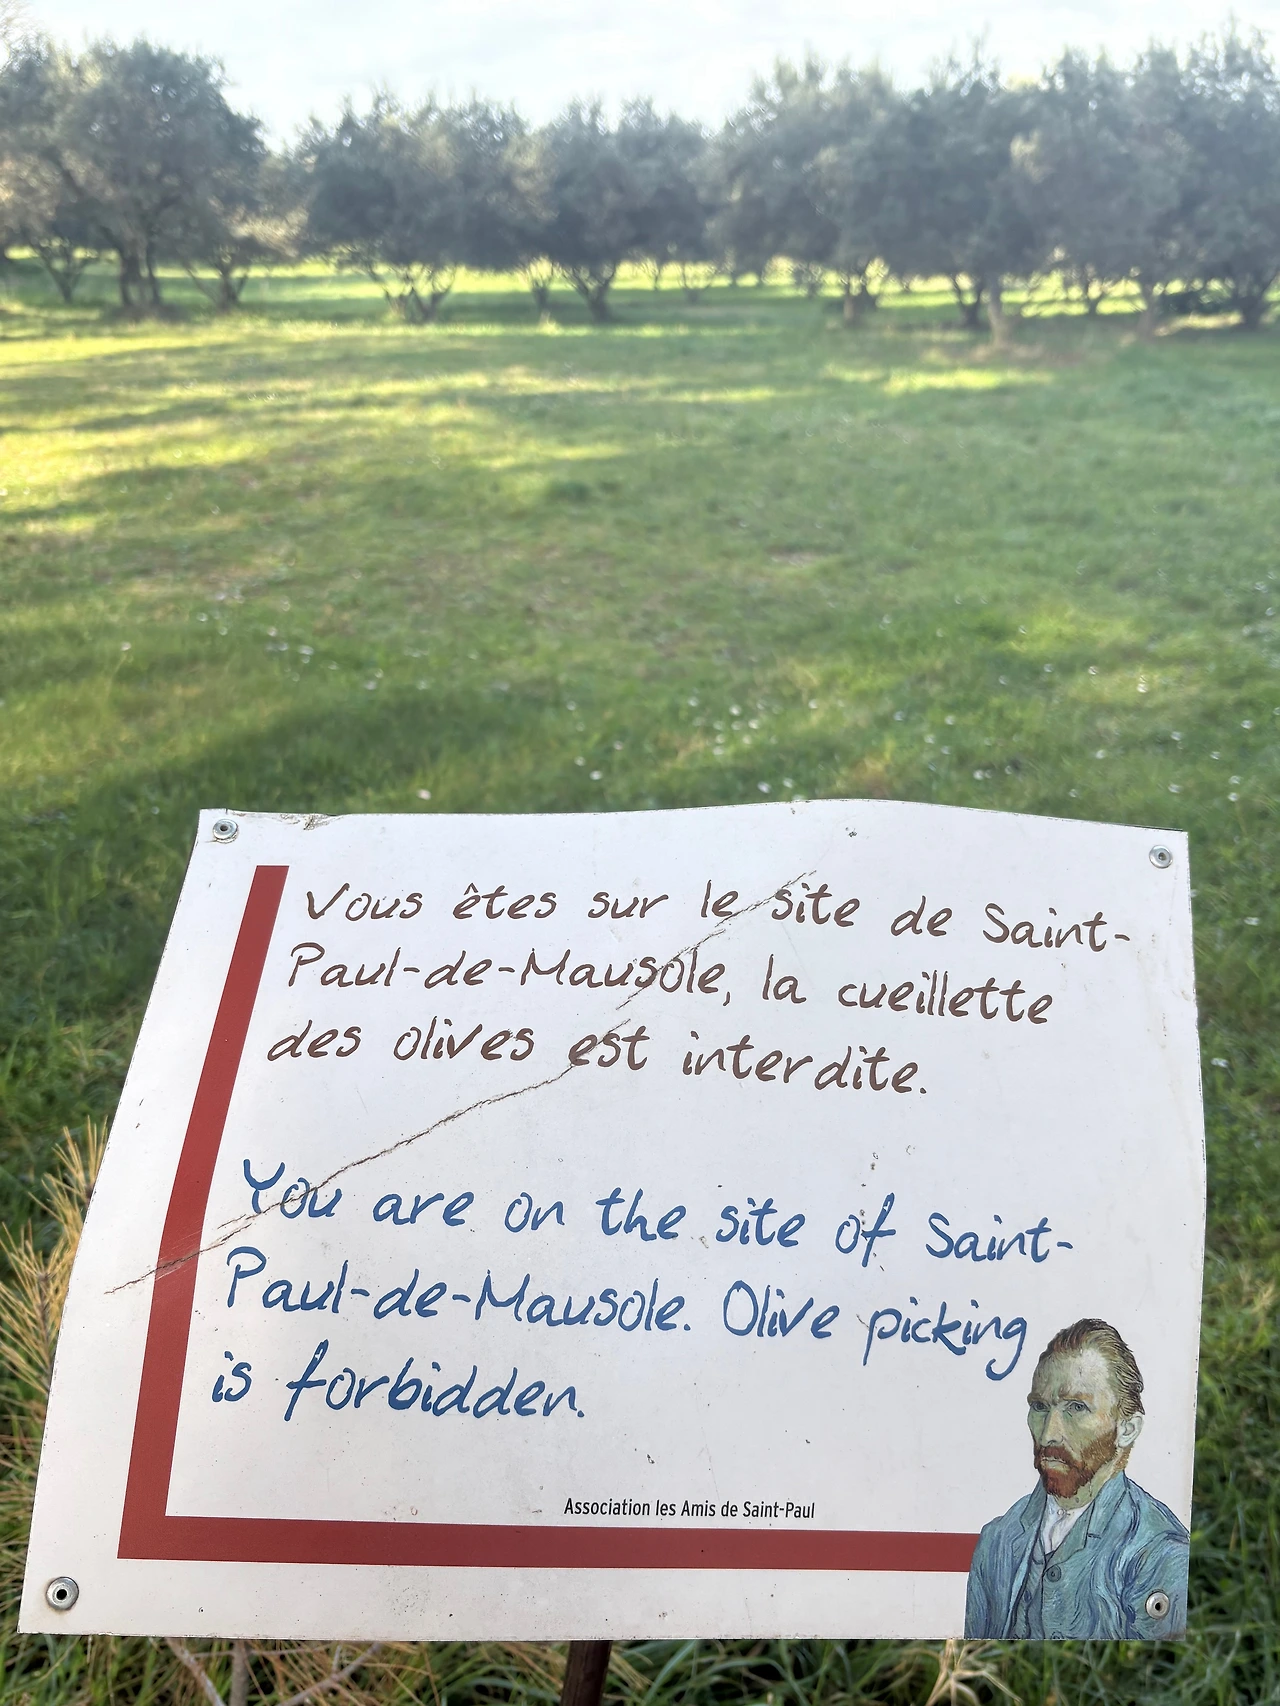 Vous êtes sur le site de Saint-
Paul-de-Mausole, la cueillette
des olives est interdite.
You are on the site of Saint-
Paul-de-Mausole. Olive picking
is forbidden.
Association les Amis de Saint-Paul